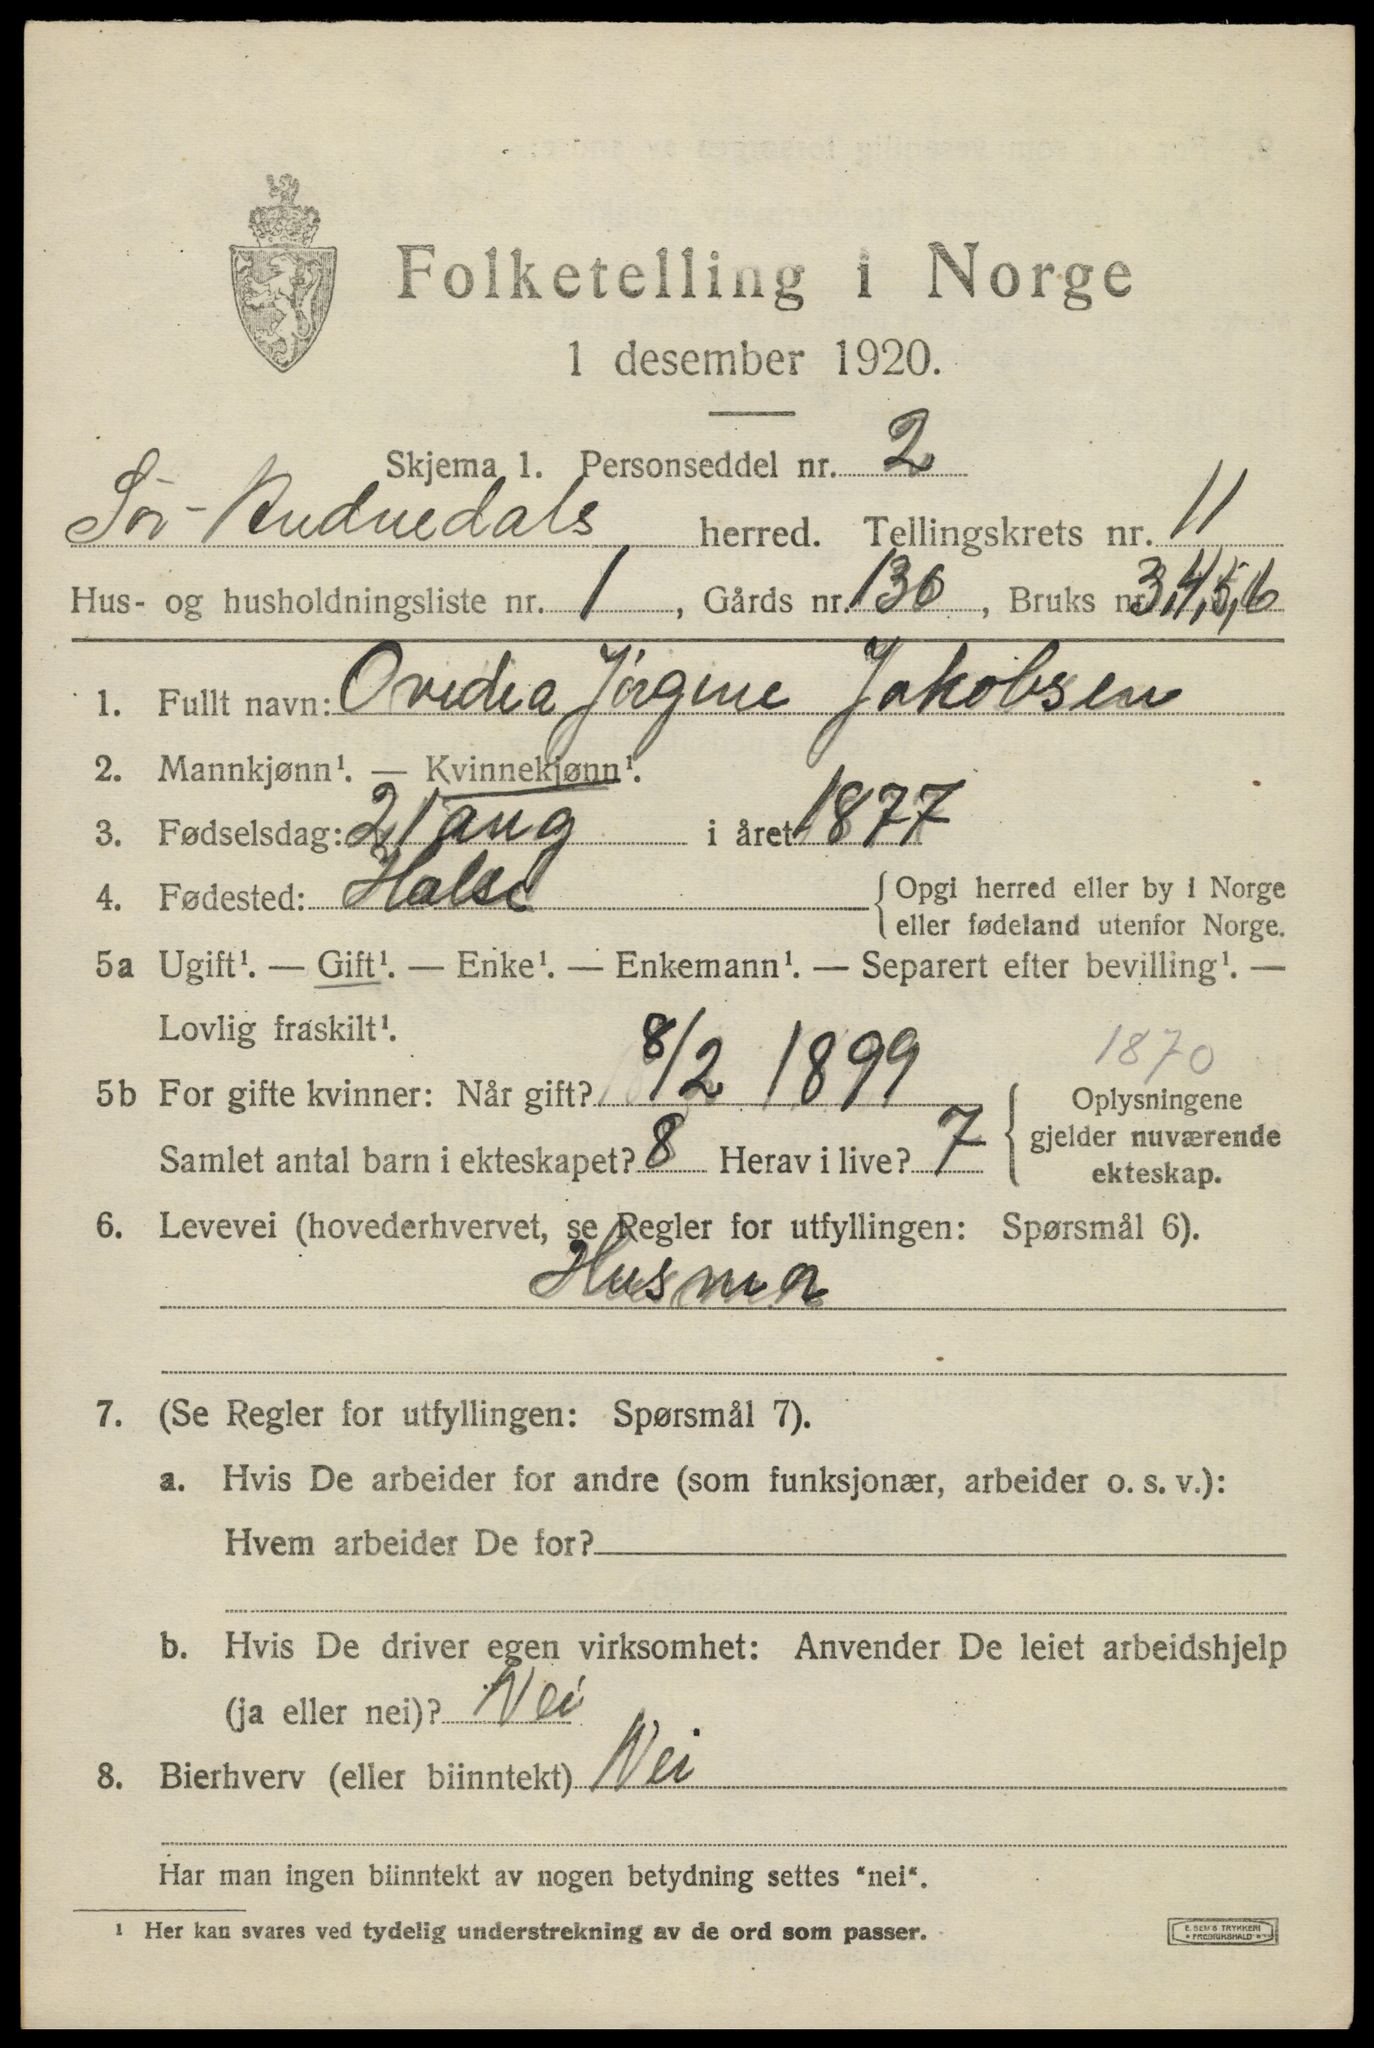 Folketelling i Norge
1 desember 1920.
Skjema 1. Personseddel nr. 2
Sør-Audnedals herred. Tellingskrets nr. 11
Hus- og husholdningsliste nr. 1, Gårds nr. 130, Bruks nr. 3,4,5,6
1. Fullt navn: Ovedia Jørgine Jakobsen
2. Mannkjønn¹. — Kvinnekjønn¹.
3. Fødselsdag: 21 aug i året 1877
4. Fødested: Halse {Opgi herred eller by i Norge
eller fødeland utenfor Norge.
5a Ugift¹. — Gift¹. — Enke¹. — Enkemann¹. — Separert efter bevilling¹. —
Lovlig fraskilt¹.
1870
5b For gifte kvinner: Når gift? 8/2 1899 { Oplysningene
gjelder nuværende
ekteskap.
Samlet antal barn i ekteskapet? 8 Herav i live? 7
6. Levevei (hovederhvervet, se Regler for utfyllingen: Spørsmål 6).
Husmor
7. (Se Regler for utfyllingen: Spørsmål 7).
a. Hvis De arbeider for andre (som funksjonær, arbeider o. s. v.):
Hvem arbeider De for?
b. Hvis De driver egen virksomhet: Anvender De leiet arbeidshjelp
(ja eller nei)? Nei
8. Bierhverv (eller biinntekt) Nei
Har man ingen biinntekt av nogen betydning settes "nei".
¹ Her kan svares ved tydelig understrekning av de ord som passer.
E. SEM'S TRYKKERI
FREDRIKSHALD